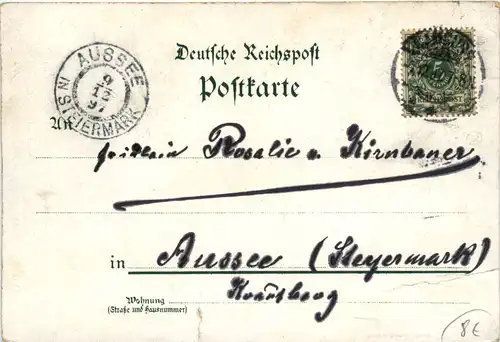 Deutsche Reichspost
Postkarte
AUSSEE
IN STEIERMARK
9
12
97
An
Fräulein Rosalie v. Kirnbauer
in Aussee (Steyermark)
Wohnung
(Straße und Hausnummer)
8€